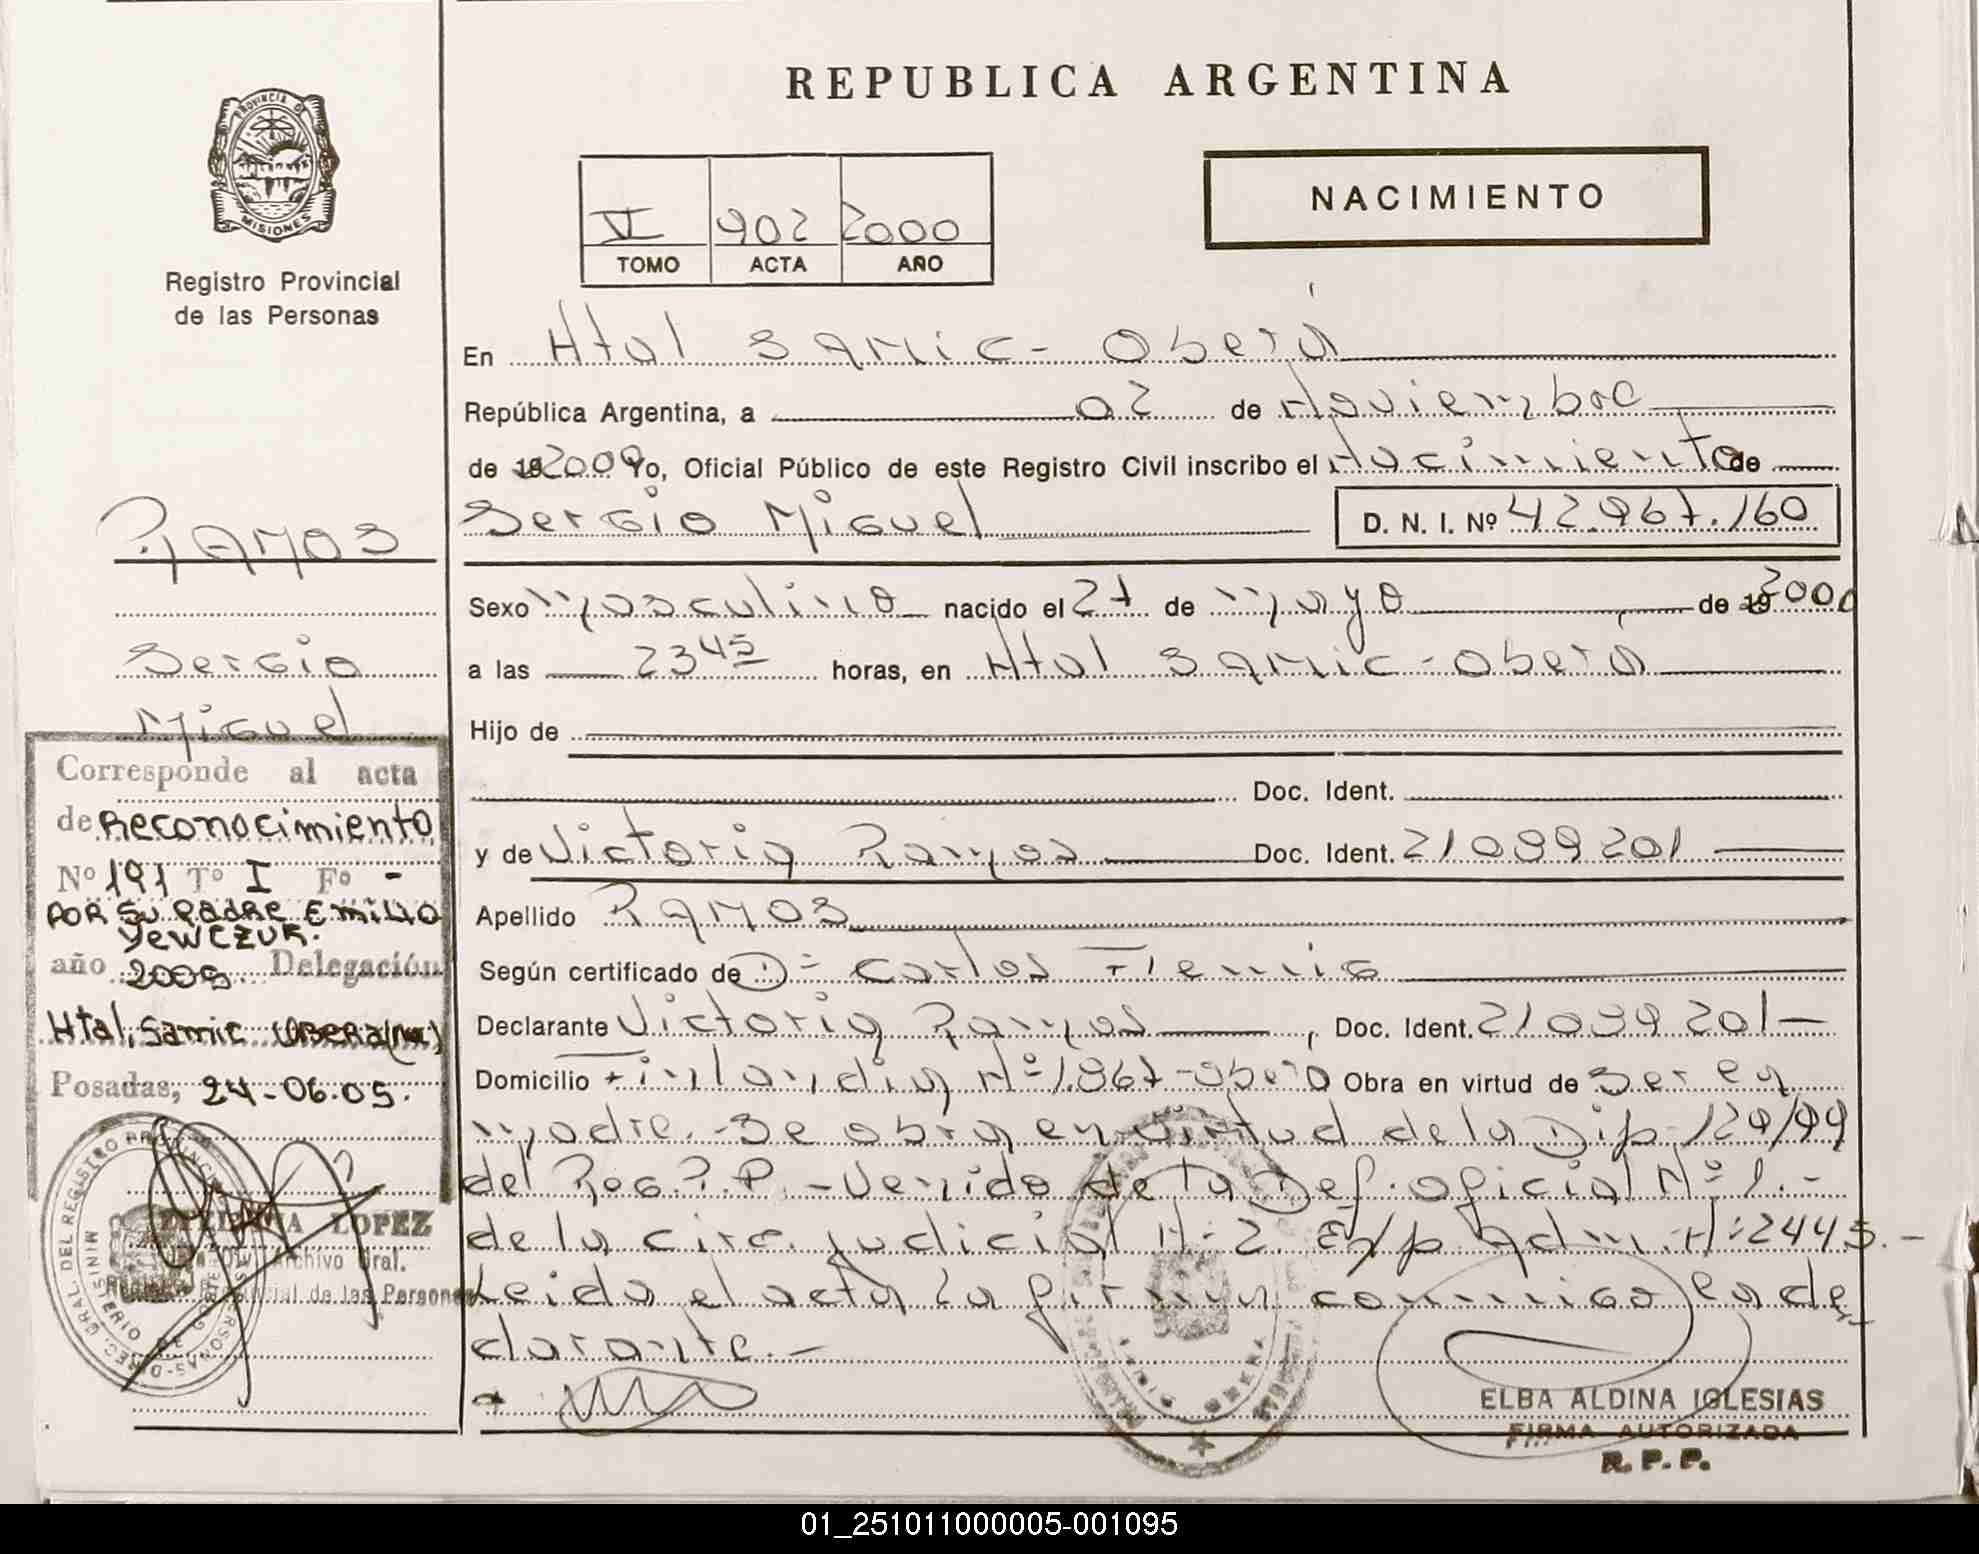 REPUBLICA ARGENTINA
PROVINCIA DE
MISIONES
Registro Provincial
de las Personas
NACIMIENTO
VI 902 2000
TOMO ACTA AÑO
En Htal SAMIC - Oberá
República Argentina, a 02 de Noviembre
de 19 2000 Yo, Oficial Público de este Registro Civil inscribo el Nacimiento de
Sergio Miguel D. N. I. Nº 42.967.160
RAMOS
Sergio
Miguel
Sexo masculino nacido el 27 de mayo de 19 2000
a las 23 45 horas, en Htal SAMIC - Oberá
Hijo de
Doc. Ident.
y de Victoria Ramos Doc. Ident. 21099201
Apellido RAMOS
Según certificado de Dr Carlos
Declarante Victoria Ramos, Doc. Ident. 21099201
Domicilio Finlandia Nº 1.867 - Oberá Obra en virtud de Ser la
madre. - Se obra en virtud de la Disp 129/99
del Reg. P. P. - Venido de la Def. oficial Nº 1. -
de la circ. judicial Nº 2. Exp Adm. Nº 2445. -
Leida el acta la firma conmigo la de
clarante. -
ELBA ALDINA IGLESIAS
FIRMA AUTORIZADA
R. P. P.
Corresponde al acta
de Reconocimiento
Nº 191 Tº I Fº -
POR Su Padre Emilio
Yewczuk.
año 2005 Delegación
Htal, Samic OBERA (Mnes)
Posadas, 24-06-05.
LOPEZ
Archivo Gral.
Registro Provincial de las Personas
01_251011000005-001095